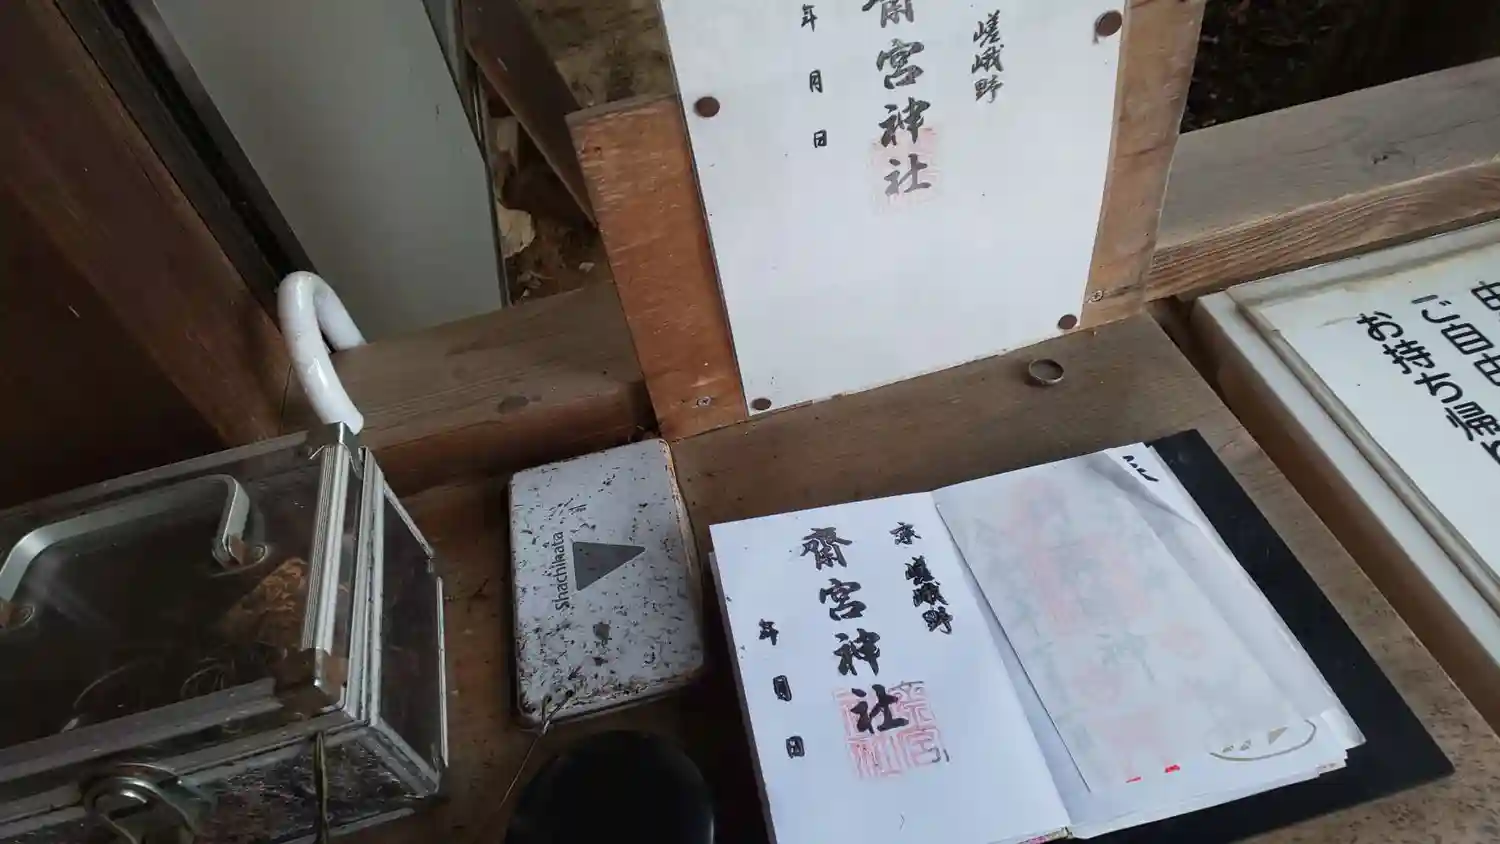 嵯峨野
齋宮神社
年 月 日
shachihata
京 嵯峨野
齋宮神社
年 月 日
ご自由
お持ち帰り